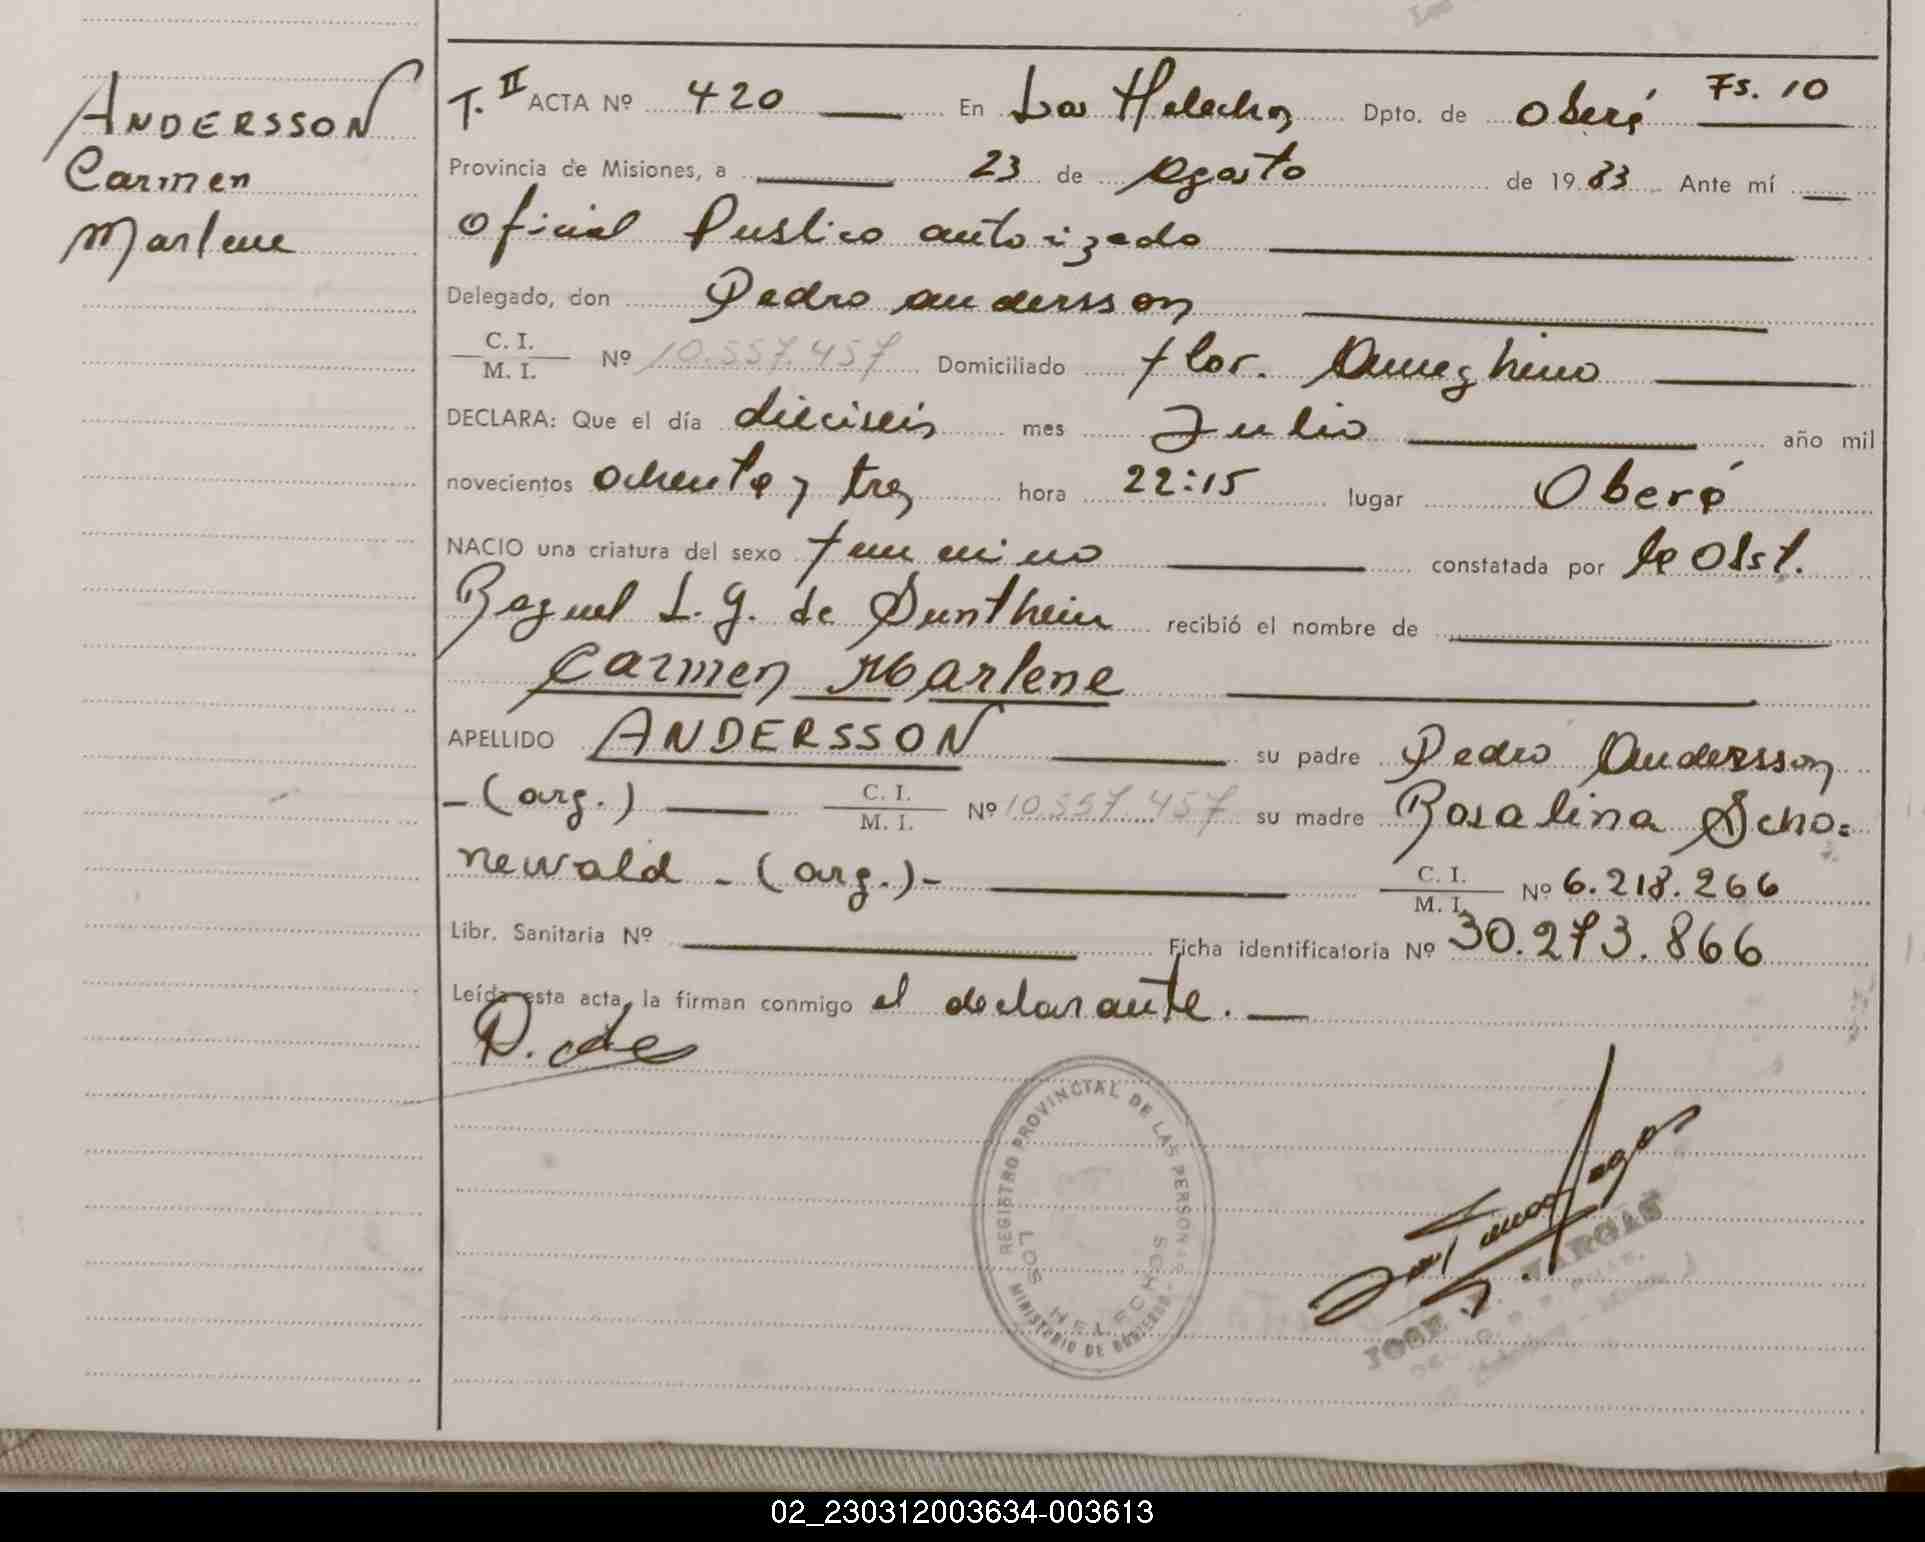 ANDERSSON
Carmen
Marlene
T. II ACTA Nº 420 En Los Helechos Dpto. de Oberá Fs. 10
Provincia de Misiones, a 23 de Agosto de 19 83 Ante mí
Oficial Publico autorizado
Delegado, don Pedro Andersson
C. I. / M. I. Nº 10.557.457 Domiciliado flor. Ameghino
DECLARA: Que el día dieciseis mes Julio año mil
novecientos ochenta y tres hora 22:15 lugar Oberá
NACIO una criatura del sexo femenino constatada por la Obst.
Raquel L. G. de Sunthein recibió el nombre de
Carmen Marlene
APELLIDO ANDERSSON su padre Pedro Andersson
- (arg.) C. I. / M. I. Nº 10.557.457 su madre Rosalina Scho=
newald - (arg.) - C. I. / M. I. Nº 6.218.266
Libr. Sanitaria Nº Ficha identificatoria Nº 30.273.866
Leída esta acta, la firman conmigo el declarante.
REGISTRO PROVINCIAL DE LAS PERSONAS
LOS HELECHOS
MINISTERIO DE GOBIERNO
JOSE F. VARGAS
02_230312003634-003613